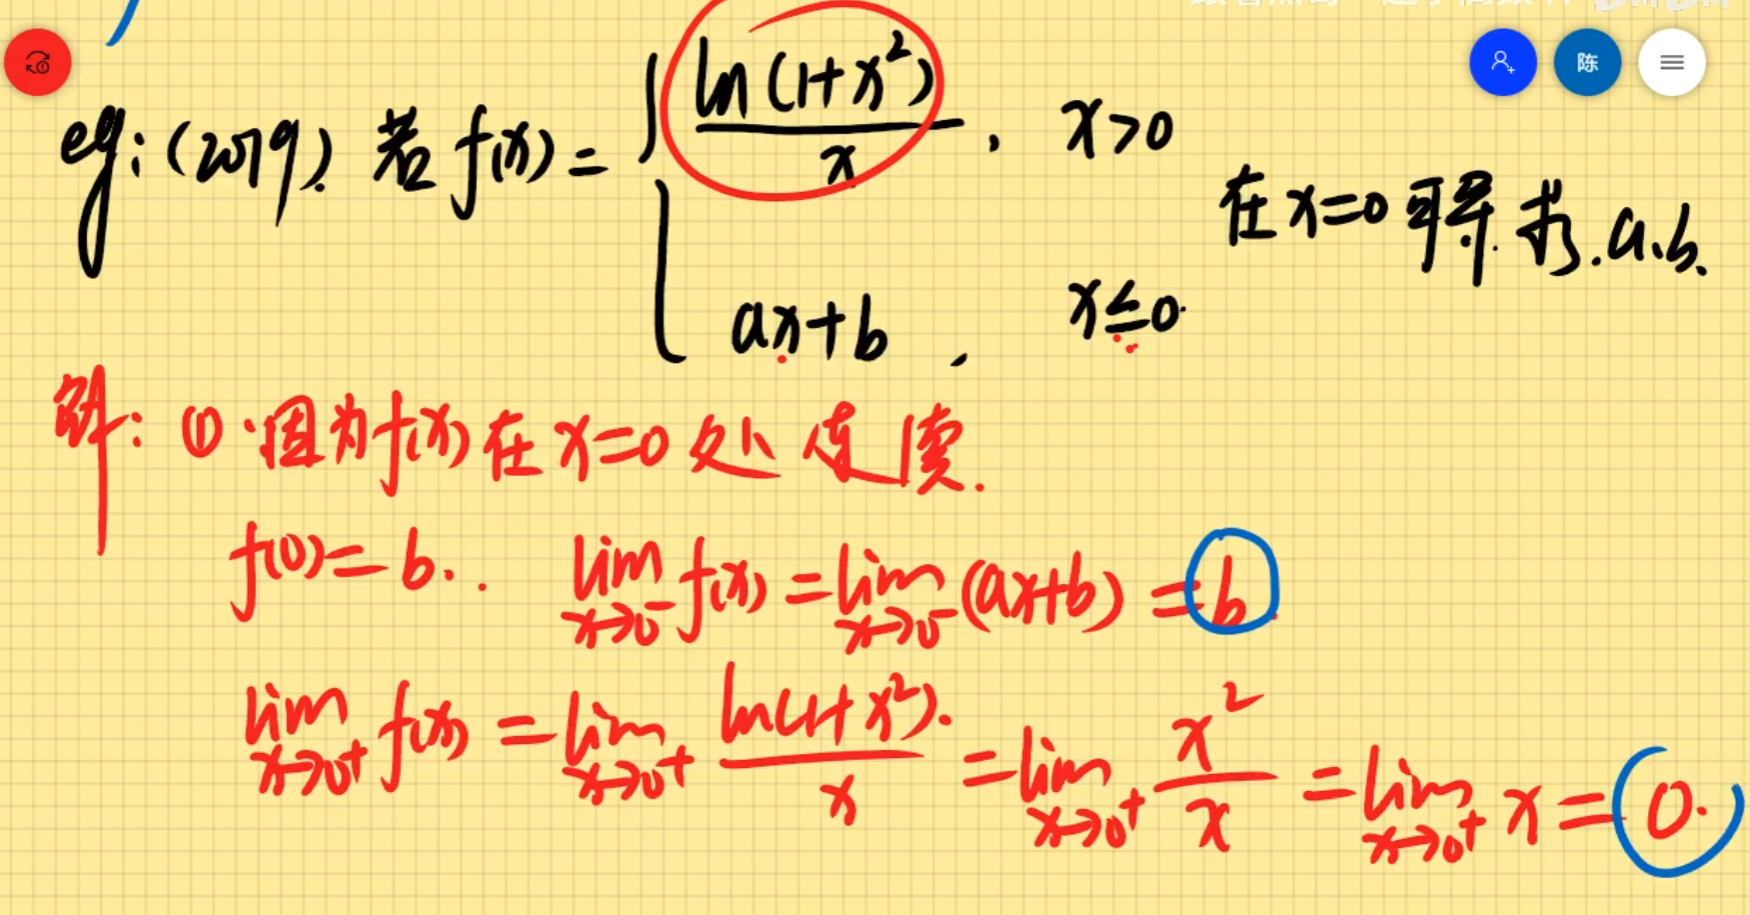 eg: (2019). 若 f(x) = { ln(1+x²)/x , x>0
ax+b , x≤0.
在 x=0 可导. 求. a.b.
陈
解: ① 因为 f(x) 在 x=0 处连续.
f(0) = b. lim x→0⁻ f(x) = lim x→0⁻ (ax+b) = b.
lim x→0⁺ f(x) = lim x→0⁺ ln(1+x²)/x = lim x→0⁺ x²/x = lim x→0⁺ x = 0.